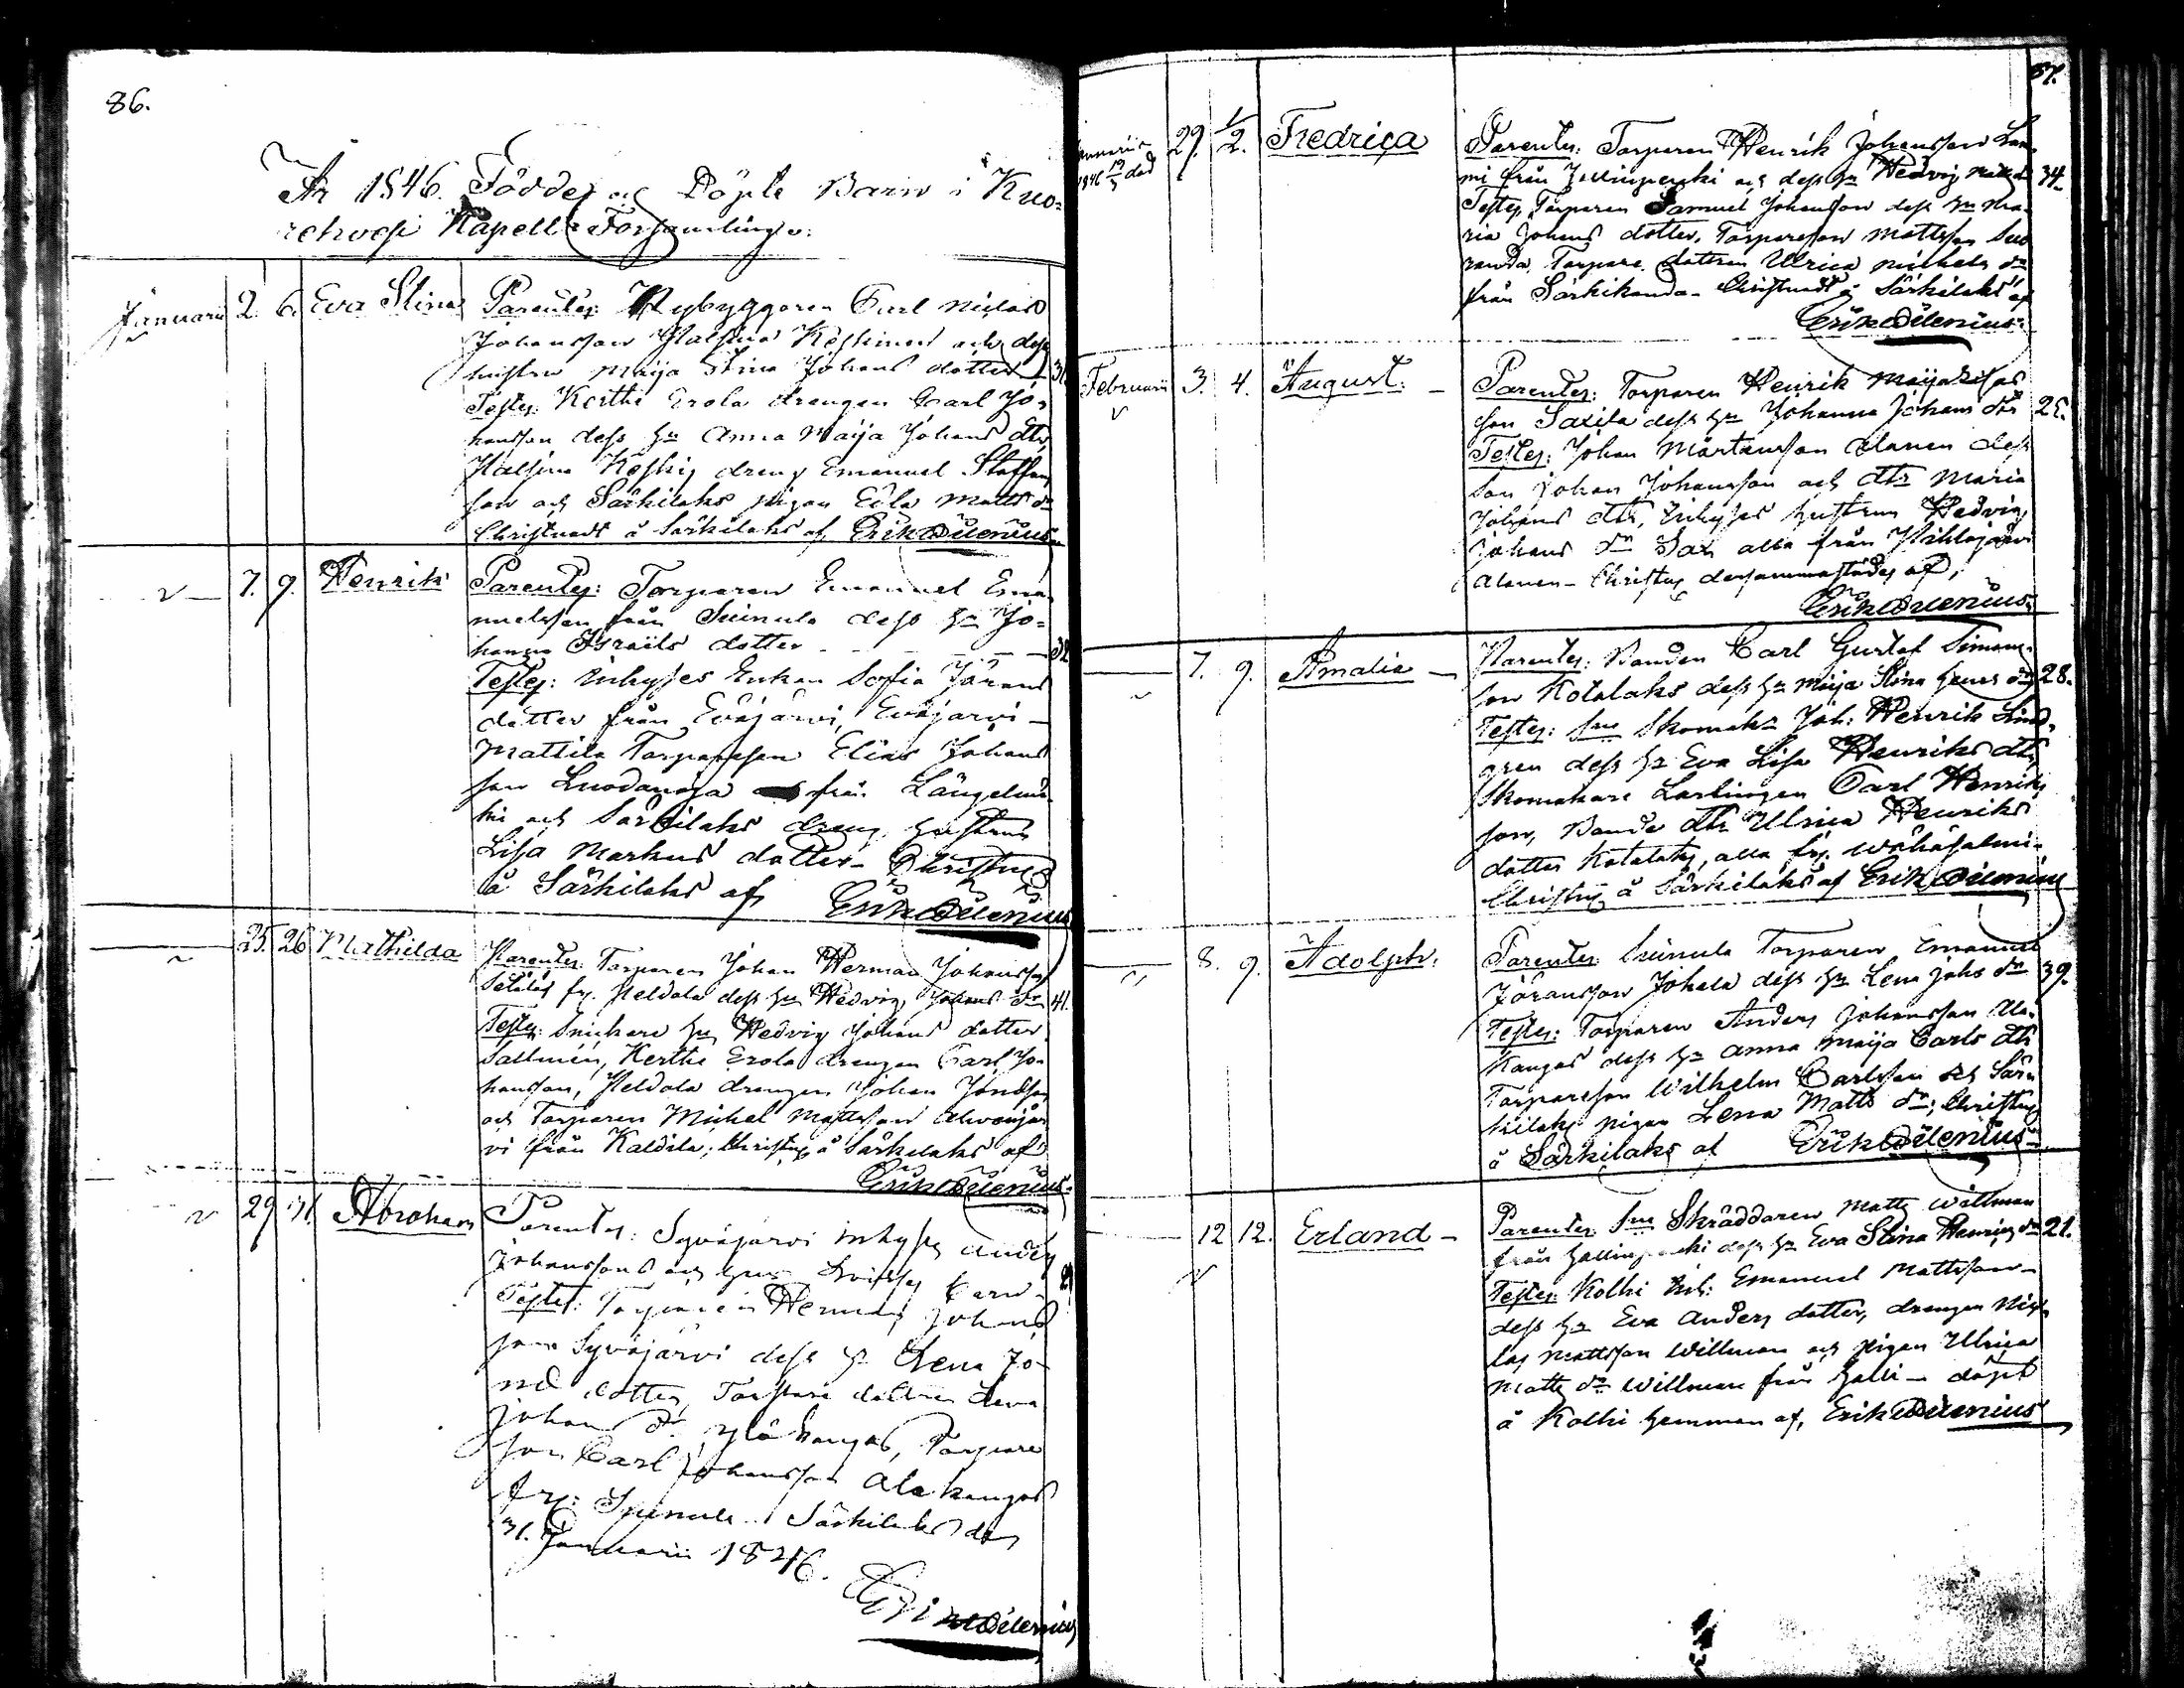 86.
År 1846. Födde och Döpte Barn i Kuo-
rehvesi Kapells Församling:
Januarii 2. 6. Eva Stina Parentes: Nybyggaren Carl Niclas
Johansson Halsina Keskinen och dess
hustru Maija Stina Johans dotter 31
Testes: Kerthe Erola drengen Carl Jo-
hansson dess h:u Anna Maija Johans dtr,
Halsina Keskis dreng Emanuel Staffans
son och Särkilaks pigan Edla Matts dr
Christnadt å Särkilaks af Erik Dilenius
7. 9. Henrik Parentes: Torparen Emanuel Ema-
nuelsson från Suinula dess h:u Jo-
hanna Israils dotter 32
Testes: Inhyses Enkan Sofia Jörans
dotter från Eväjärvi, Eväjärvi
Mattila Torparson Elias Johans
son Luodanoja från Längelmä-
ki och Särkilaks dreng hustrun
Lisa Markus dotter - Christnas
å Särkilaks af Erik Dilenius
25. 26 Mathilda Parentes: Torparen Johan Herman Johansson
fr. Heldola dess h:u Hedvig Johans dr 41.
Testes: Snickare h:u Hedvig Johans dotter
Sallmén, Kerthe Erola drengen Carl Jo-
hansson, Heldola drengen Johan Jonasson
och Torparen Michel Mattsson Ahvenjär
vi från Kaldila; Christnas å Särkilaks af
Erik Dilenius
29 31. Abraham Parentes: Syväjärvi Inhyses Anders
Johansson och
Testes: Torparen Herman Johans
son Syväjärvi dess h:u Lena Jo-
dotter, Torpare dottren Lena
Johans dr Yläkangas, Torpare
son Carl Johansson Alakangas
fr: Suinula. Särkilaks den
31. Januarii 1846.
Erik Dilenius
87.
Januarii 29. 1/2. Fredrica Parentes: Torparen Henrik Johansson Lam-
1846 19/3 död
mi från Hallinpenki och dess h:u Hedvig Matts dr 34.
Testes, Torparen Samuel Johansson dess h:u Ma-
ria Johans dotter, Torpareson Mattsson Suo
randa, Torpare dottren Ulrica Michels dr
från Särkikanda - Christnadt å Särkilaks af
Erik Dilenius
Februarii 3. 4. August. - Parentes: Torparen Henrik
son Saxila dess h:u Johanna Johans dtr 25.
Testes: Johan Mårtensson Alanen dess
son Johan Johansson och dtr Maria
Johans dtr, Inhyses hustrun Hedvig
Johans dr Sax alla från Wihlajärvi
Alanen - Christnas dersammastädes af,
Erik Dilenius
7. 9. Amalia - Parentes: Bonden Carl Gustaf Simons-
son Kotalaks dess h:u Maija Stina Henr dr 28.
Testes: Sne Skomak: Joh: Henrik Lind-
gren dess h:u Eva Lisa Henriks dtr,
Skomakare Lärlingen Carl Henriks
son, Bonde dtr Ulrica Henriks
dotter Kotalaks, alla fr. Wähäsalmi-
Christnas å Särkilaks af Erik Dilenius
8. 9. Adolph. Parentes: Suinula Torparen Emanuel
Jöransson Johela dess h:u Lena Johs dr 39.
Testes: Torparen Anders Johansson Ala-
kangas dess h:u Anna Maija Carls dtr
Torpareson Wilhelm Carlsson och Sär-
kilaks pigan Lena Matts dr; Christnas
å Särkilaks af Erik Dilenius
12 12. Erland - Parentes Sne Skräddaren Matts Willman
från Hallinpenki dess h:u Eva Stina Henrics dr 21.
Testes: Kolhi Inh: Emanuel Mattsson-
dess h:u Eva Anders dotter, drengen Nic-
las Mattsson Willman och pigan Ulrica
Matts dr Willman från Halli - döpt
å Kolhi hemman af, Erik Dilenius